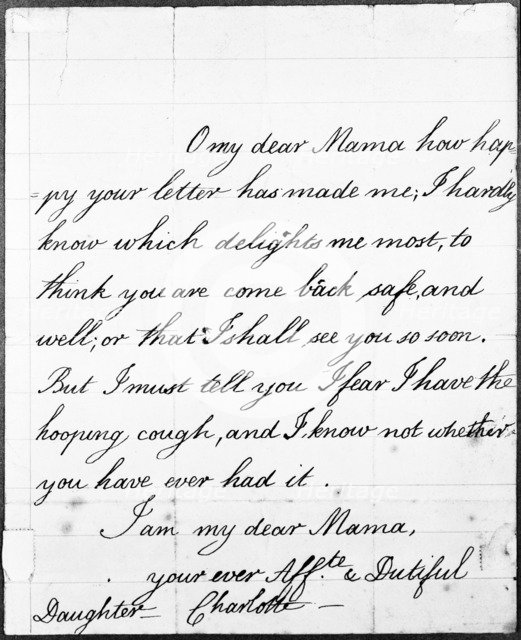 O my dear Mama how hap=
=py your letter has made me; I hardly
know which delights me most, to
think you are come back safe, and
well; or that I shall see you so soon.
But I must tell you I fear I have the
hooping cough, and I know not whether
you have ever had it.
I am my dear Mama,
your ever Aff.te & Dutiful
Daughter— Charlotte—